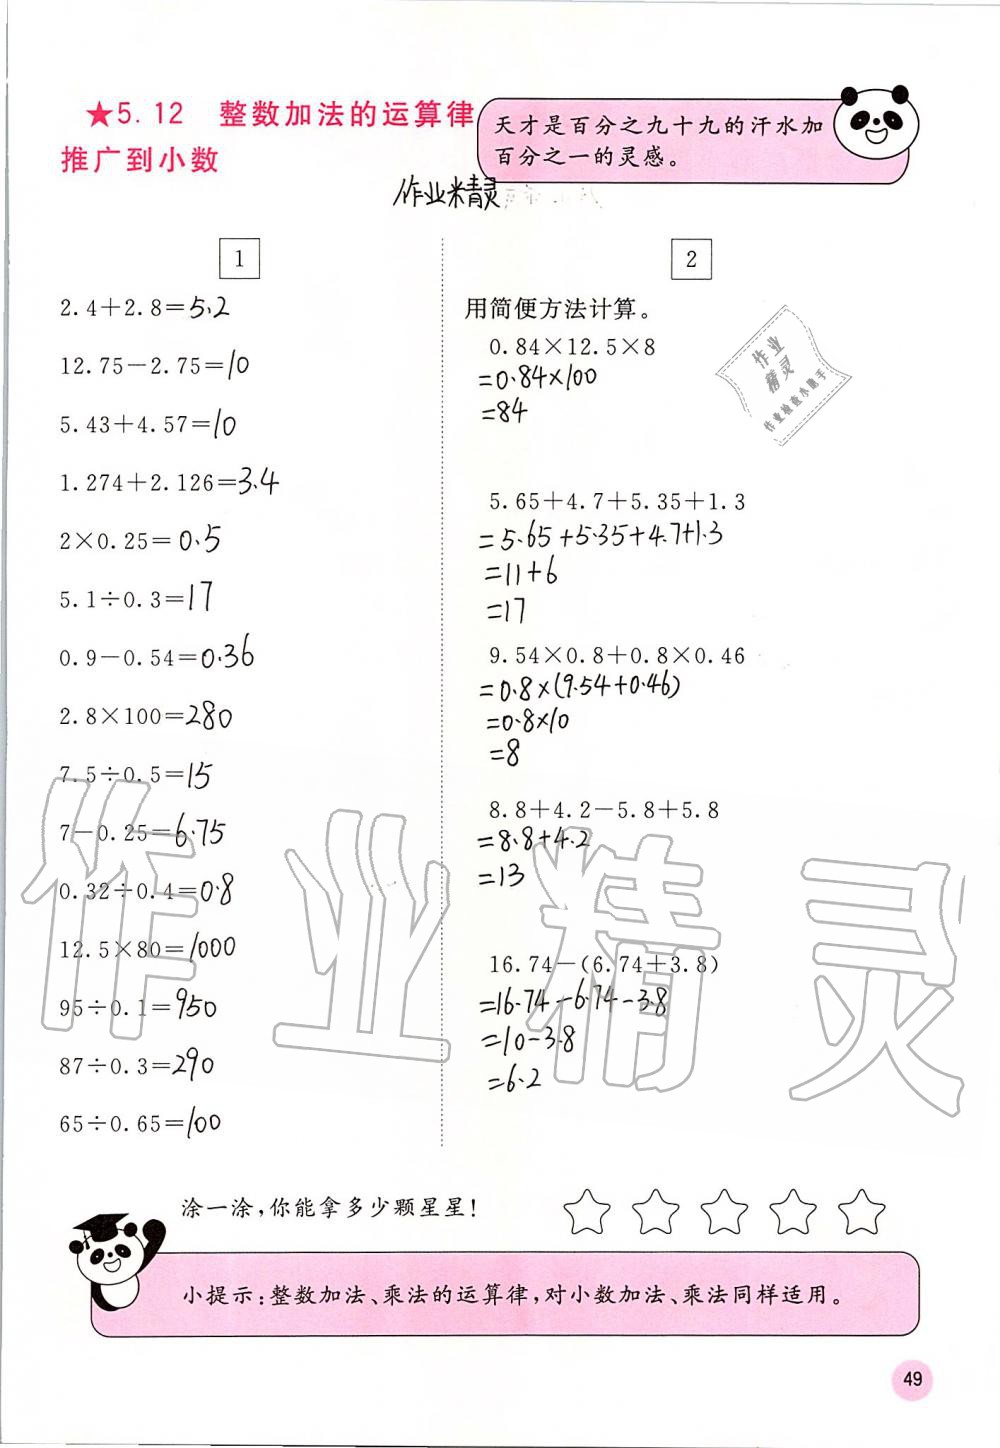 ★5.12 整数加法的运算律
推广到小数
天才是百分之九十九的汗水加
百分之一的灵感。
作业精灵
1
2.4+2.8=5.2
12.75-2.75=10
5.43+4.57=10
1.274+2.126=3.4
2×0.25=0.5
5.1÷0.3=17
0.9-0.54=0.36
2.8×100=280
7.5÷0.5=15
7-0.25=6.75
0.32÷0.4=0.8
12.5×80=1000
95÷0.1=950
87÷0.3=290
65÷0.65=100
2
用简便方法计算。
0.84×12.5×8
=0.84×100
=84
5.65+4.7+5.35+1.3
=5.65+5.35+4.7+1.3
=11+6
=17
9.54×0.8+0.8×0.46
=0.8×(9.54+0.46)
=0.8×10
=8
8.8+4.2-5.8+5.8
=8.8+4.2
=13
16.74-(6.74+3.8)
=16.74-6.74-3.8
=10-3.8
=6.2
作业
精灵
作业检查小助手
作业精灵
涂一涂,你能拿多少颗星星!
小提示:整数加法、乘法的运算律,对小数加法、乘法同样适用。
49